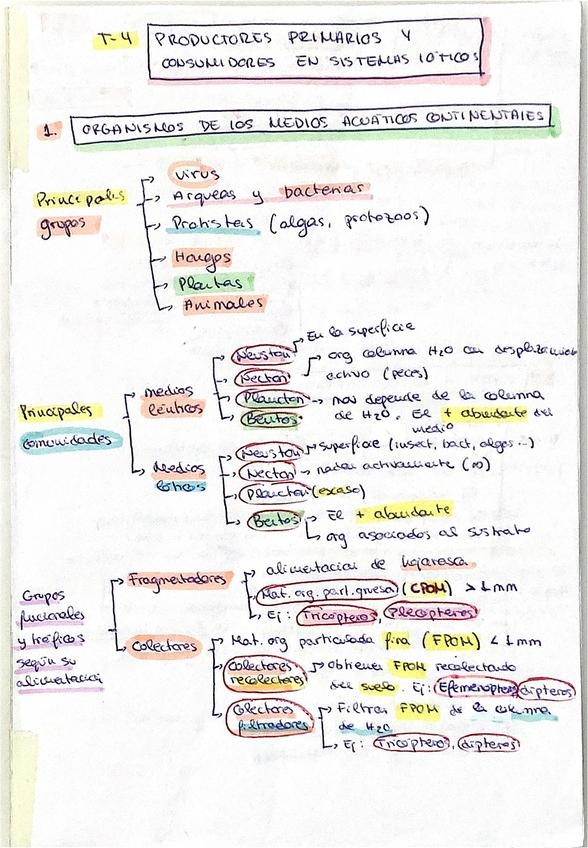 T-4 PRODUCTORES PRIMARIOS Y
CONSUMIDORES EN SISTEMAS LÓTICOS
1. ORGANISMOS DE LOS MEDIOS ACUÁTICOS CONTINENTALES
Principales
grupos
virus
Arqueas y bacterias
Protistas (algas, protozoos)
Hongos
Plantas
Animales
Principales
comunidades
medios
lénticos
Neuston
En la superficie
Necton
org columna H2O con desplazamiento
activo (peces)
Plancton → mov depende de la columna
de H2O. El + abundante del
medio
Bentos
Medios
lóticos
Neuston → superficie (insect, bact, algas...)
Necton → nadan activamente (∞)
Plancton (escaso)
Bentos → El + abundante
org asociados al sustrato
Grupos
funcionales
y tróficos
según su
alimentación
Fragmentadores
alimentación de hojarasca
Mat. org. part. gruesa (CPOM) > 1 mm
Ej: Tricópteros, Plecópteros
Colectores
Mat. org particulada fina (FPOM) < 1 mm
Colectores
recolectores
Obtienen FPOM recolectando
del suelo. Ej: Efemeropteros dípteros
Colectores
filtradores
Filtran FPOM de la columna
de H2O
Ej: Tricópteros, dípteros